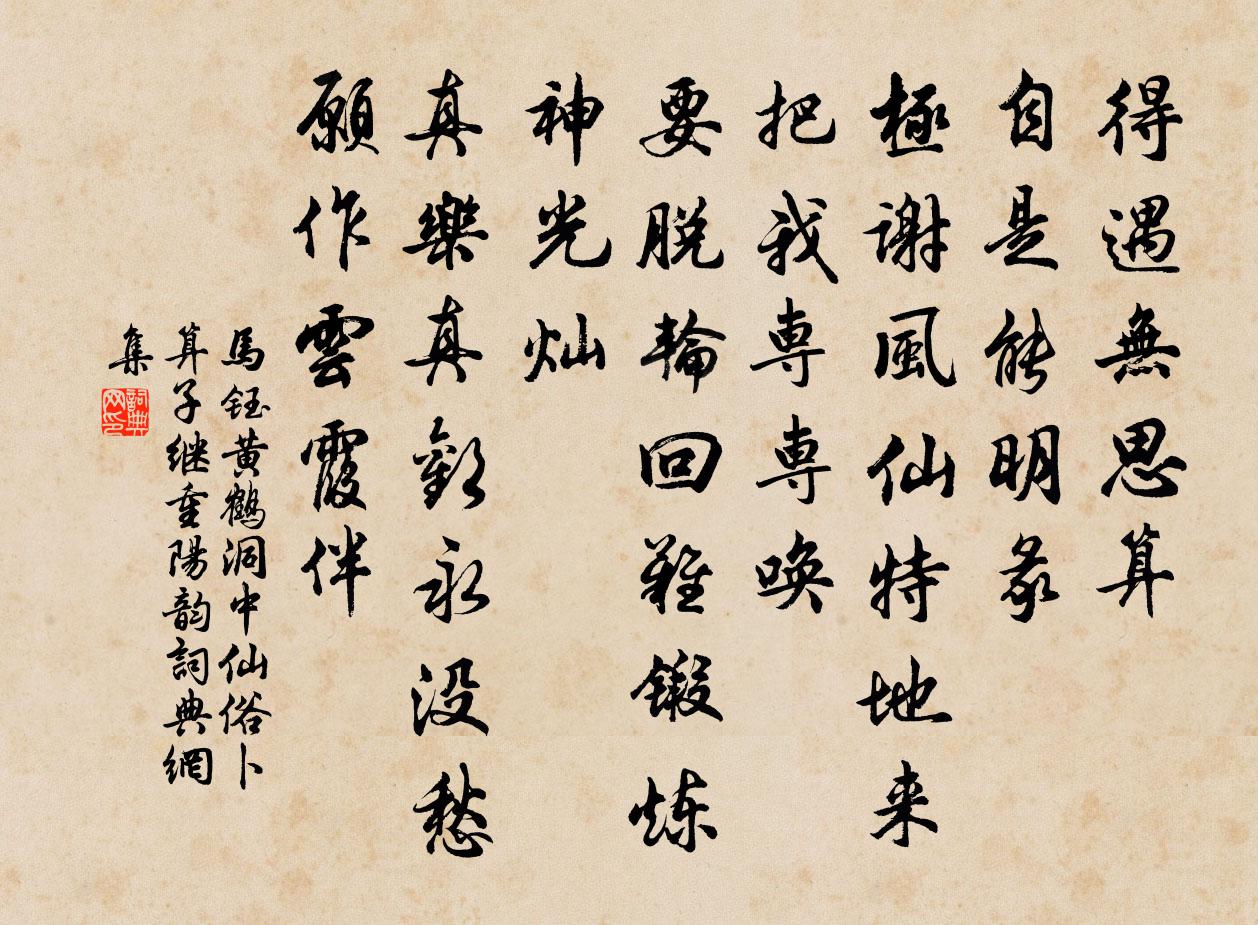 得遇無思算
自是能明彖
極謝風仙特地来
把我専専喚
要脱輪回難鍛炼
神光灿
真樂真歡永没愁
願作雲霞伴
馬鈺黄鶴洞中仙俗卜
算子继重陽韵詞典網
集
詞典网印